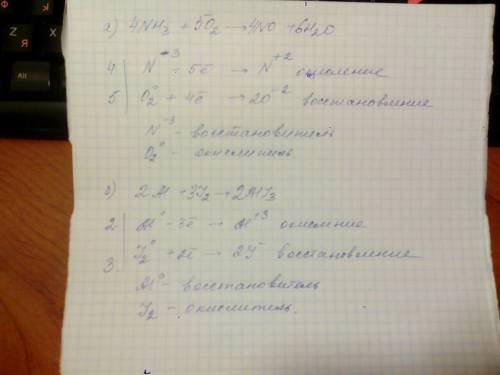 а) 4NH₃ + 5O₂ → 4NO + 6H₂O
4 | N⁻³ - 5ē → N⁺² окисление
5 | O₂⁰ + 4ē → 2O⁻² восстановление
N⁻³ - восстановитель
O₂⁰ - окислитель
б) 2Al + 3J₂ → 2AlJ₃
2 | Al⁰ - 3ē → Al⁺³ окисление
3 | J₂⁰ + 2ē → 2J⁻ восстановление
Al⁰ - восстановитель
J₂ - окислитель
Z
X
Alt